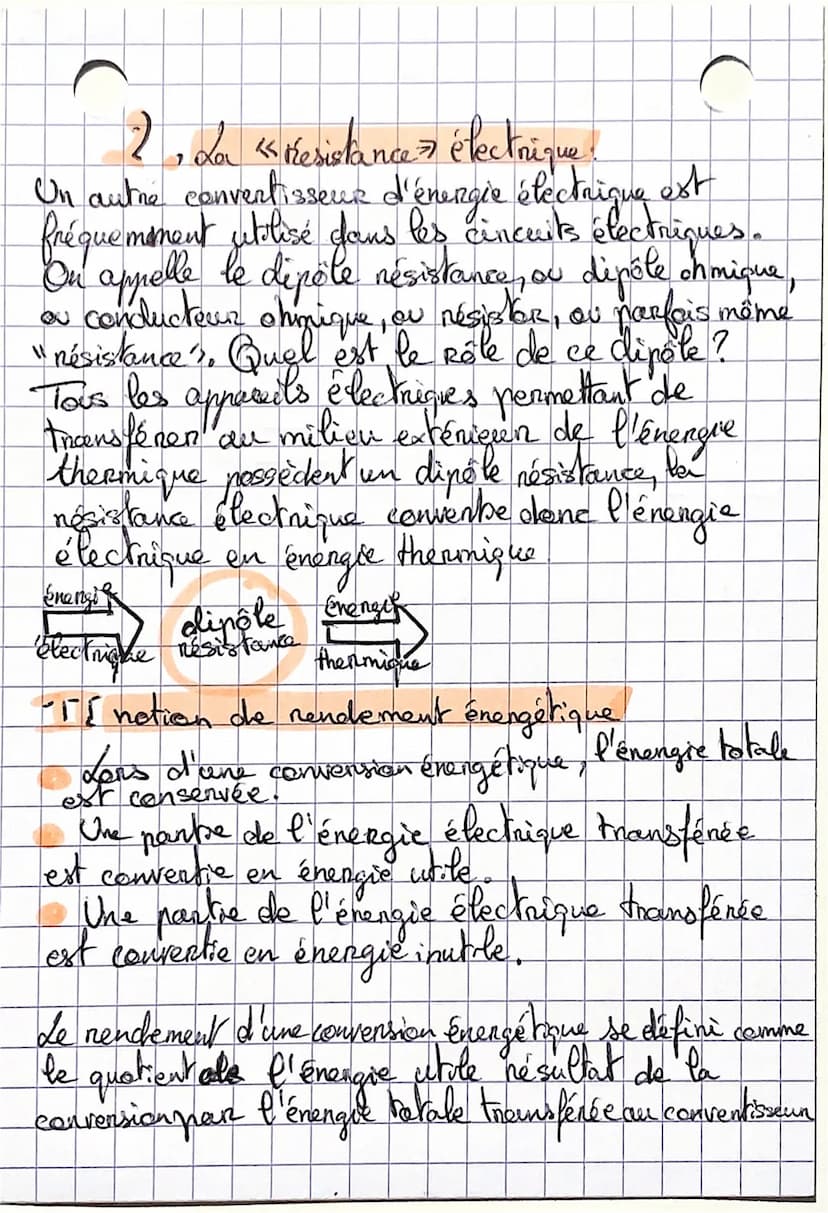 2. La « résistance » électrique.
Un autre convertisseur d'énergie électrique est
fréquemment utilisé dans les circuits électriques.
On appelle le dipôle résistance, ou dipôle ohmique,
ou conducteur ohmique, ou résistor, ou parfois même
"résistance". Quel est le rôle de ce dipôle ?
Tous les appareils électriques permettant de
transférer au milieu extérieur de l'énergie
thermique possèdent un dipôle résistance, la
résistance électrique convertie donc l'énergie
électrique en énergie thermique
énergie
électrique
dipôle
résistance
énergie
thermique
III notion de rendement énergétique
Lors d'une conversion énergétique, l'énergie totale
est conservée.
Une partie de l'énergie électrique transférée
est convertie en énergie utile.
Une partie de l'énergie électrique transférée
est convertie en énergie inutile.
Le rendement d'une conversion énergétique se défini comme
le quotient de l'énergie utile résultat de la
conversion par l'énergie totale transférée au convertisseur